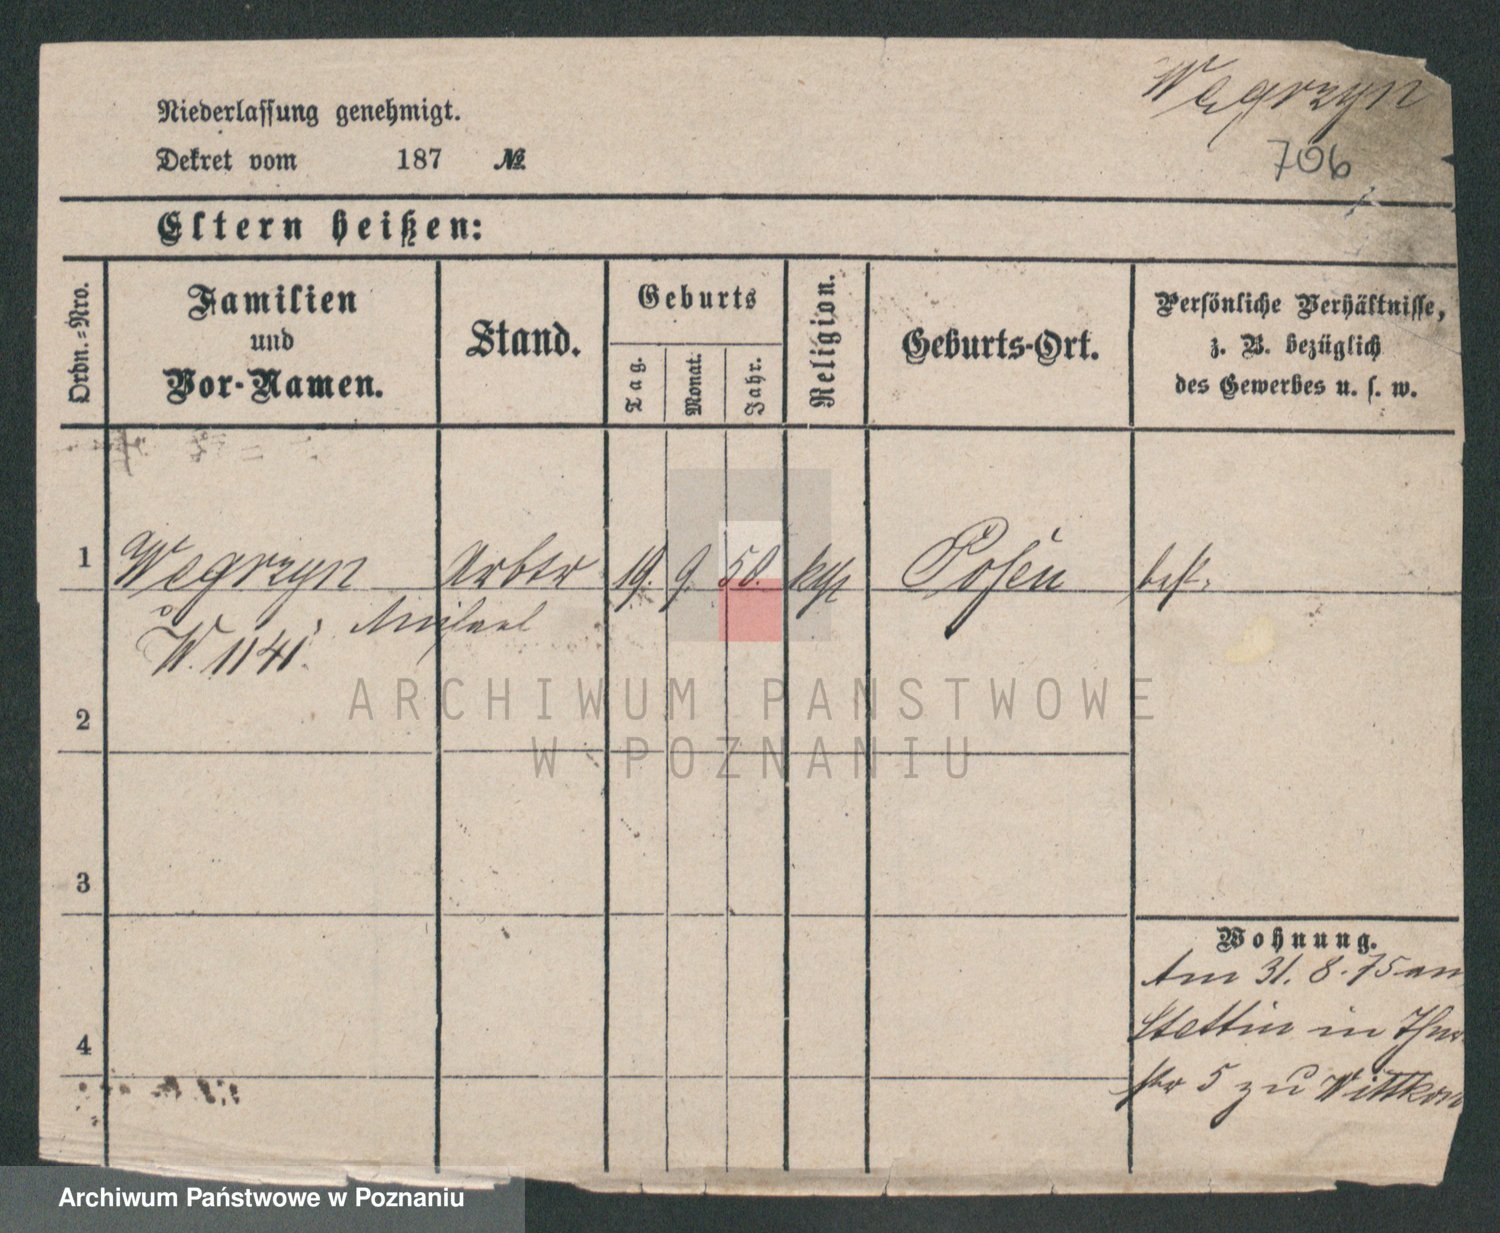 Węgrzyn
Niederlassung genehmigt.
706
Dekret vom 187 №
Eltern heißen:
Ordn.-Nro.
Familien
und
Vor-Namen.
Stand.
Geburts
Tag.
Monat.
Jahr.
Religion.
Geburts-Ort.
Persönliche Verhältnisse,
z. B. bezüglich
des Gewerbes u. s. w.
1 Węgrzyn Arbtr 19. 9. 50. kth Posen
W. 1141.
ARCHIWUM PAŃSTWOWE
2
W POZNANIU
3
Wohnung.
Am 31. 8. 75 an
Stettin in
4
str 5 zu Wittkow
Archiwum Państwowe w Poznaniu